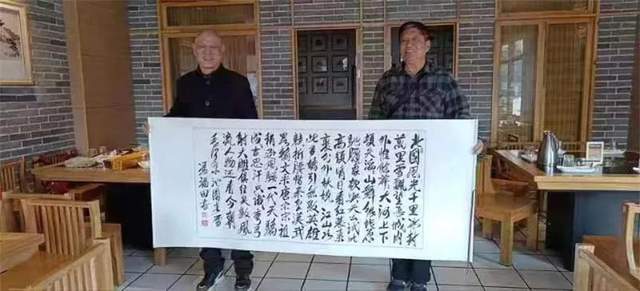 北國風光千里冰封
萬里雪飄望長城內
外惟餘莽莽大河上下
頓失滔滔山舞銀蛇原
馳蠟象欲與天公試比
高須晴日看紅裝素
裹分外妖嬈江山如
此多嬌引無數英雄
競折腰惜秦皇漢武
略輸文采唐宗宋祖
稍遜風騷一代天驕
成吉思汗只識彎弓
射大雕俱往矣數風
流人物還看今朝
毛澤東沁園春雪
福田书